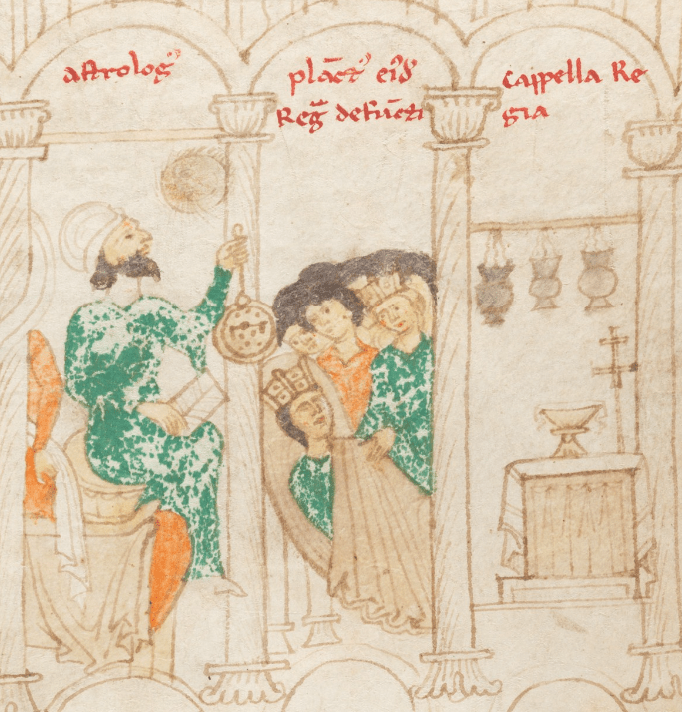 astrolog⁹
plāct⁹ ei⁹d
Reg̃ defūcti
cappella Re
gia